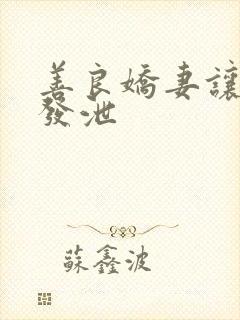 善良嬌妻讓
發泄
蘇鑫波